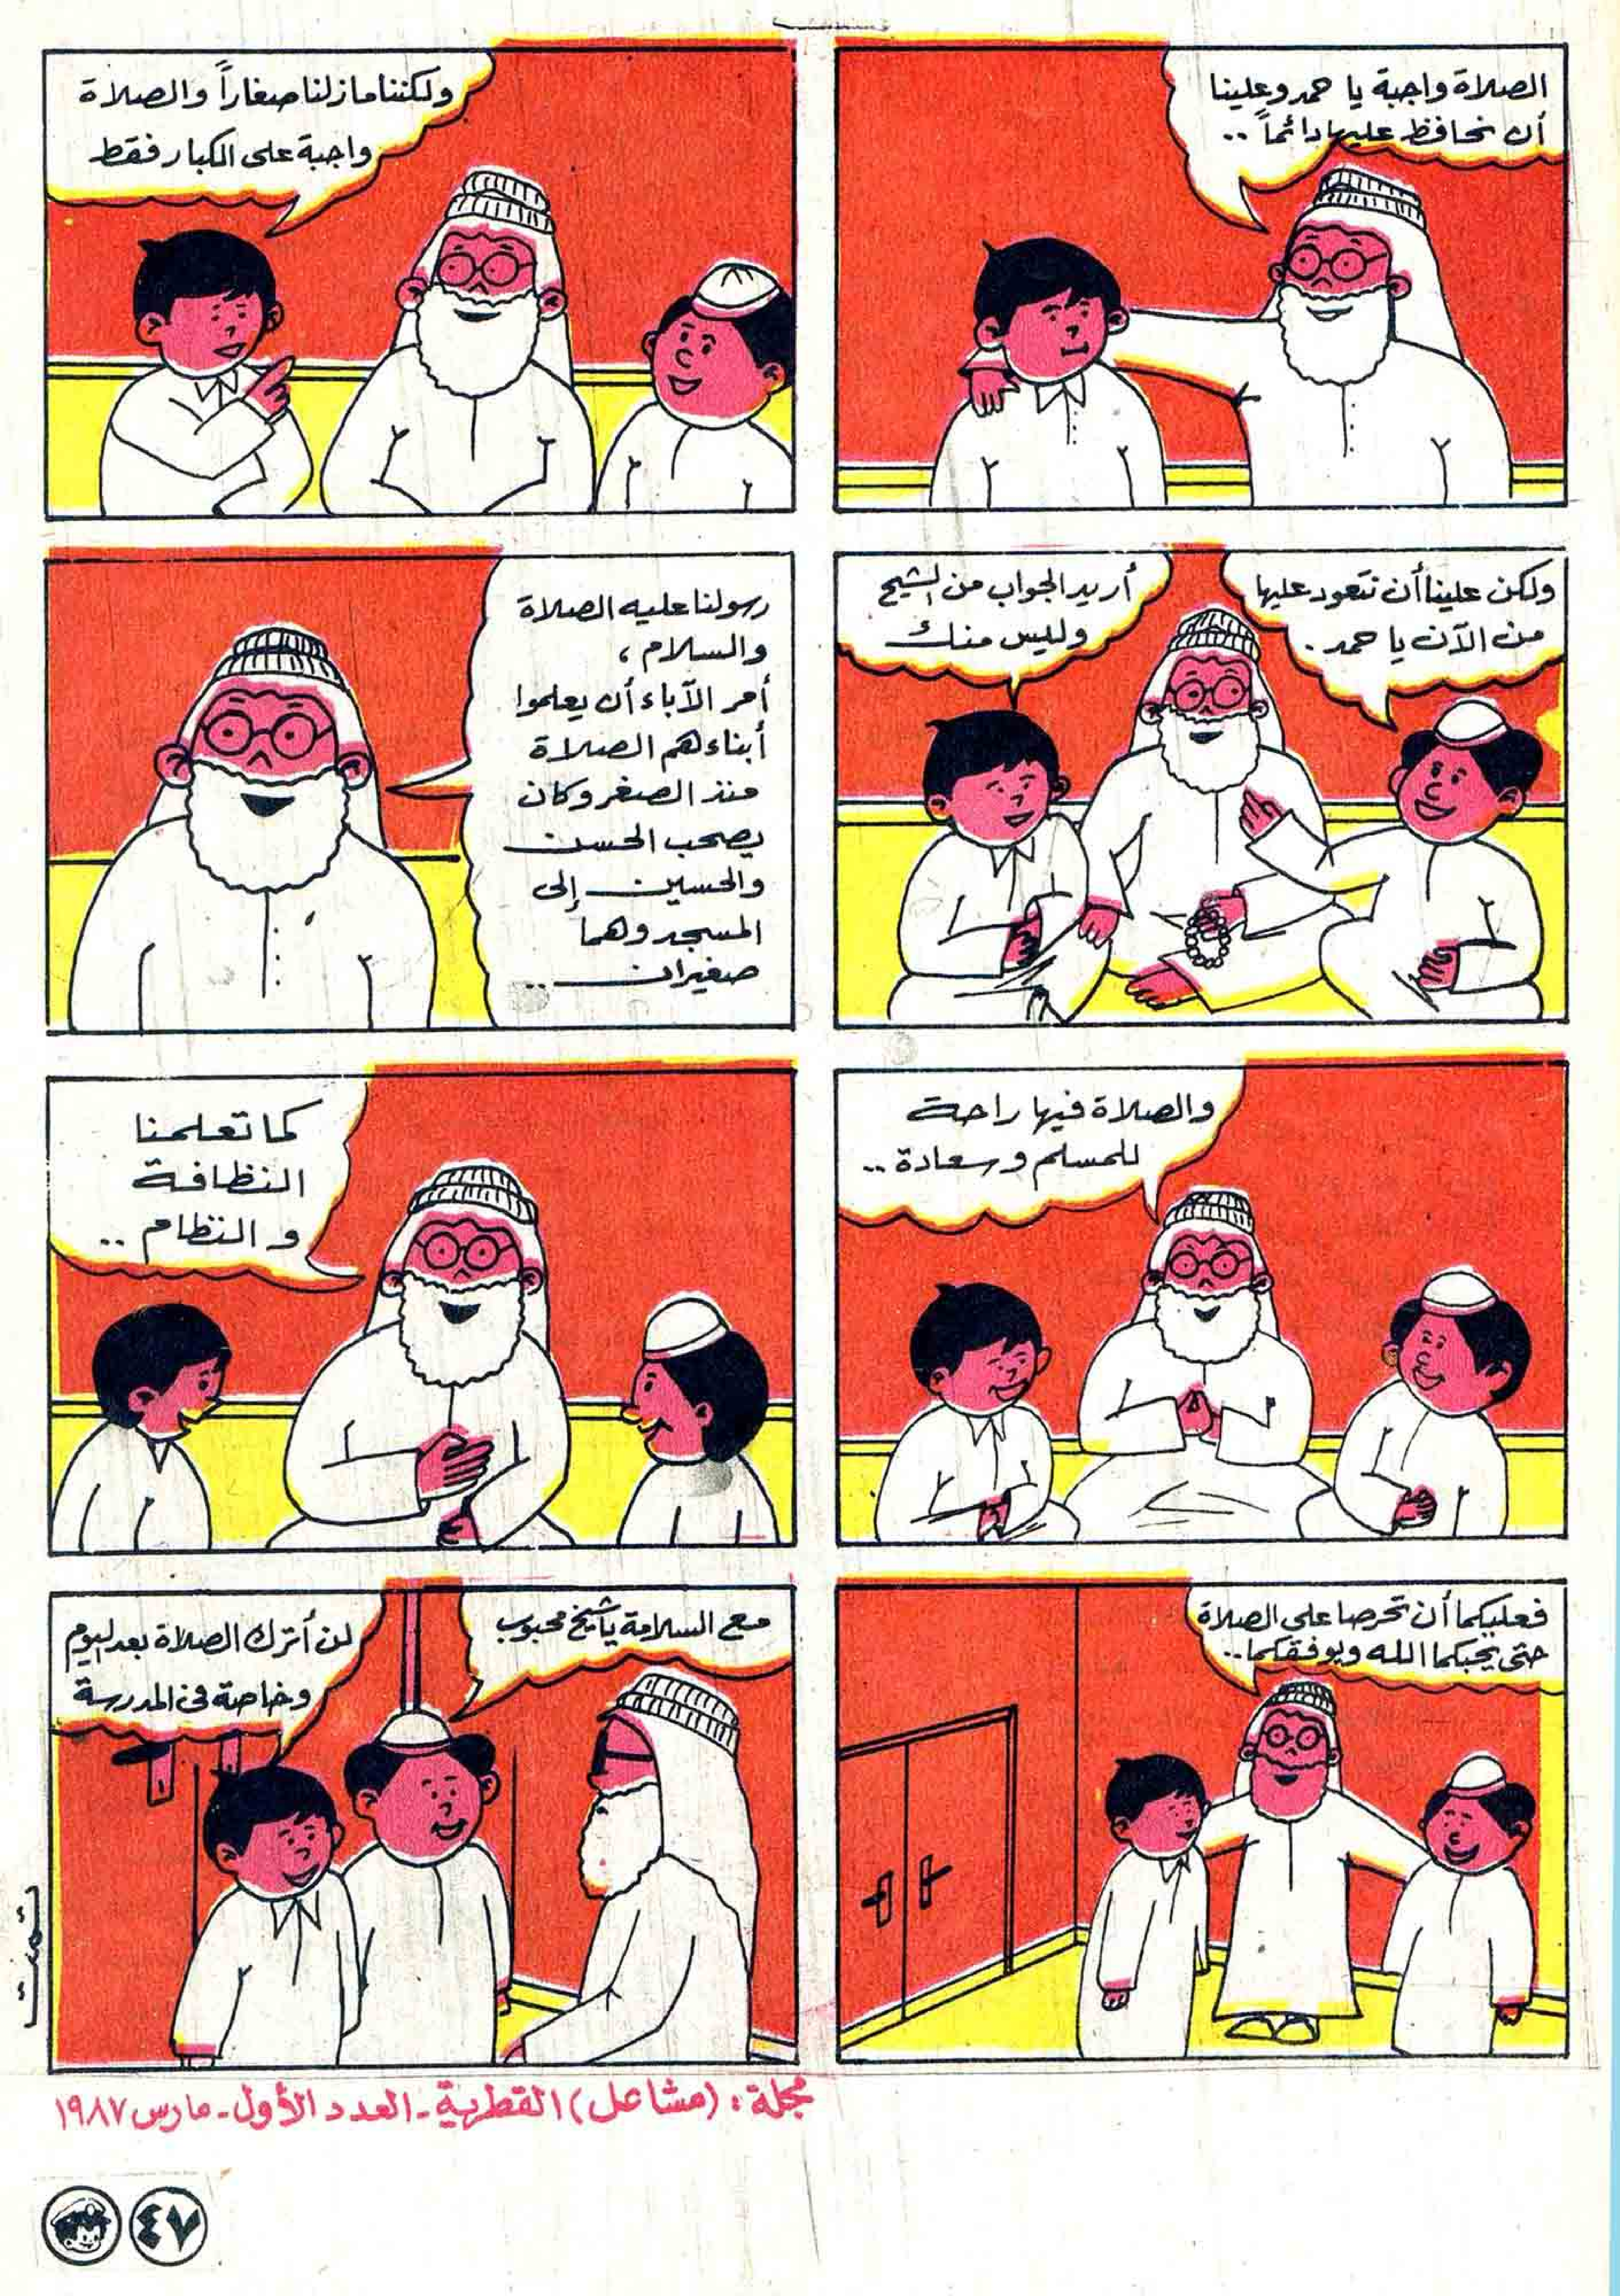 الصلاة واجبة يا حمد وعلينا
أن نحافظ عليها دائماً ..
ولكننا مازلنا صغاراً والصلاة
واجبة على الكبار فقط
ولكن علينا أن نتعود عليها
من الآن يا حمد .
أريد الجواب من الشيخ
وليس منك
رسولنا عليه الصلاة
والسلام ،
أمر الآباء أن يعلموا
أبناءهم الصلاة
منذ الصغر وكان
يصحب الحسن
والحسين إلى
المسجد وهما
صغيران ..
والصلاة فيها راحة
للمسلم وسعادة ..
كما تعلمنا
النظافة
والنظام ..
فعليكما أن تحرصا على الصلاة
حتى يحبكما الله ويوفقكما ..
مع السلامة يا شيخ محبوب
لن أترك الصلاة بعد اليوم
وخاصة في المدرسة
تمت
مجلة : (مشاعل) القطرية - العدد الأول - مارس ١٩٨٧
٤٧